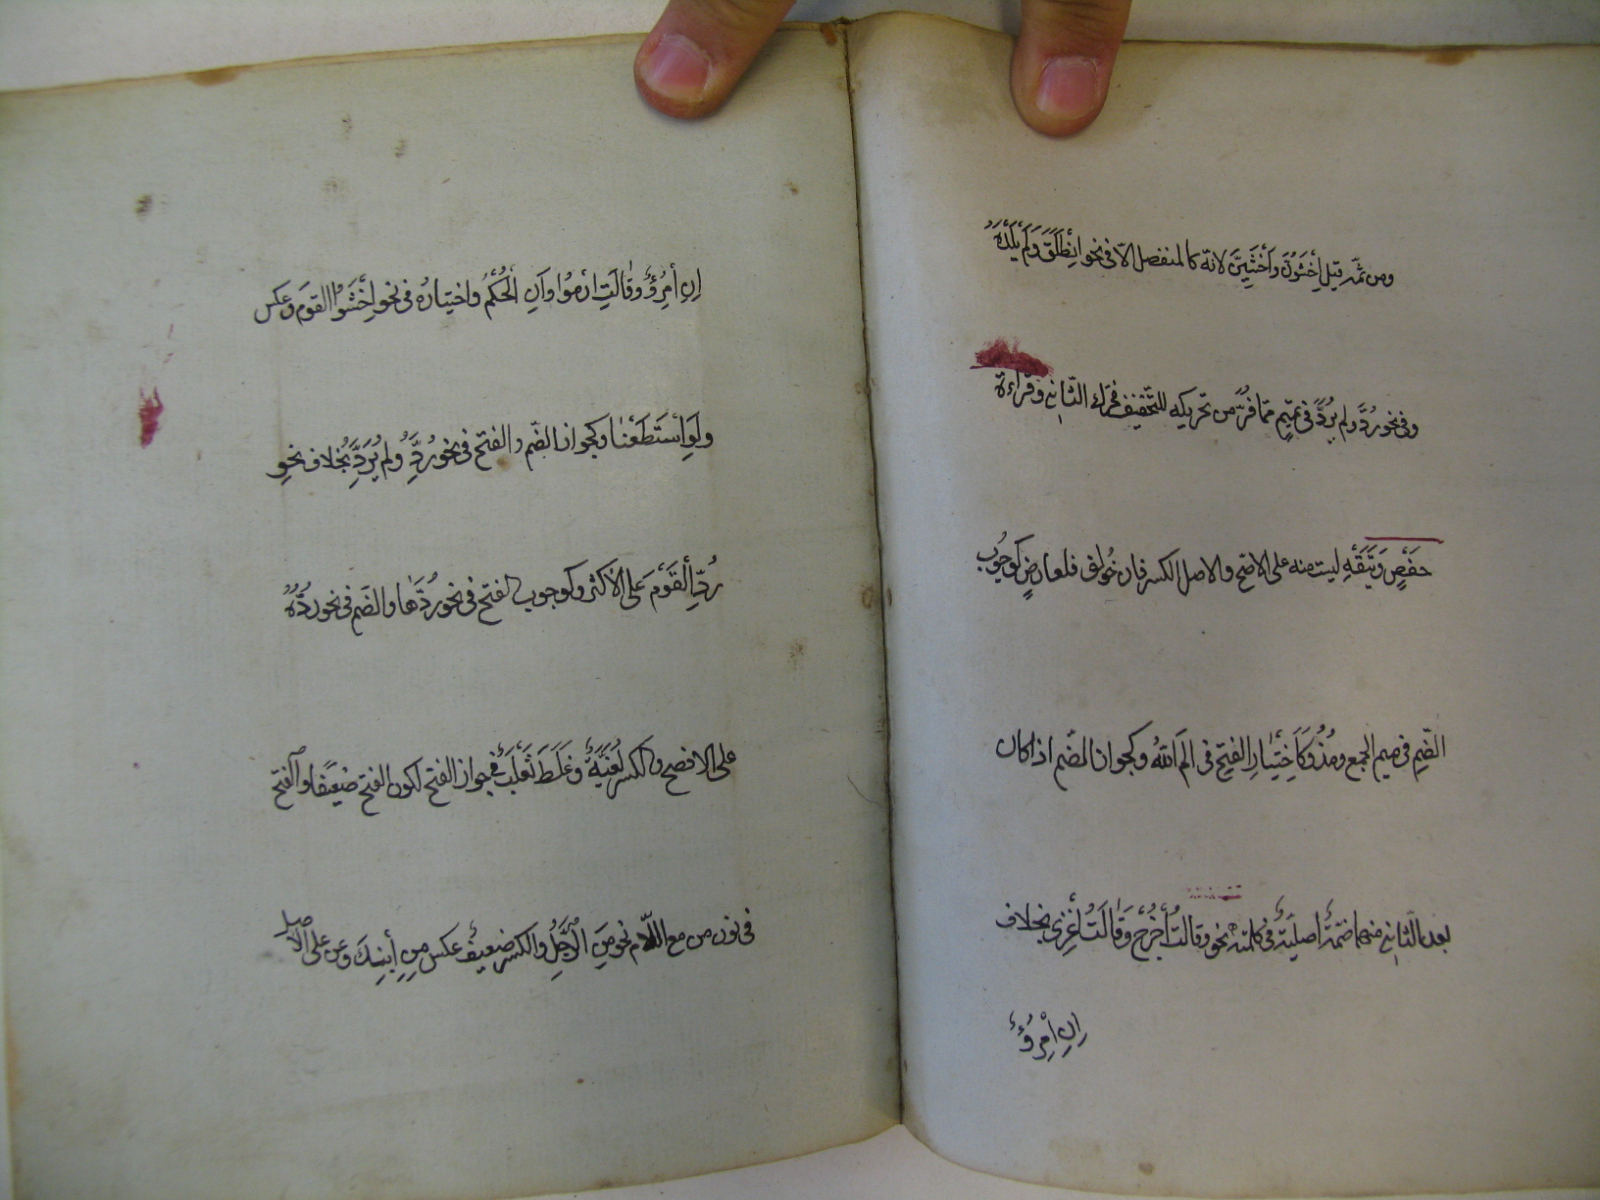 ومن ثمّه قيل اِخْشَوُنَّ وَاخْشَيِنَّ لانّه كالمنفصل الّا فى نحو اِنْطَلْقَ وَلَمْ يَلْدَهُ
وفى نحو رُدَّ ولم يَرُدَّ فى تميم ممّا فُرَّ من تحريكه للتّخفيف فحُرّك الثّانى وقراءة
حَفْصٍ وَيَتَّقْهِ ليست منه على الاصحّ والاصل الكسر فان خُولف فلعارضٍ كوجُوبِ
الضّمِ فى ميم الجمع ومُذُ وَكَاخْتِيَارِ الفتحِ فى الَمَ اَللّهُ وكجواز الضّم اذا كان
بعد الثّانى منهما ضَمّةٌ اصليةٌ فى كلمته نحو وقالتُ اُخْرُجْ وَقَالَتُ اُغْزِى بخلاف
اِنِ امْرُؤٌ
اِنِ امْرُؤٌ وقَالَتِ ارْمُوا وَاَنِ الْحُكْمُ واختياره فى نحو اِخْشَوُا القوم وعكس
ولَوِ اسْتَطَعْنا وكجواز الضّم والفتح فى نحو رُدَّ ولم يُرَدَّ بخلاف نحو
رُدِّ الْقَوْمَ على الاكثر وكوجوب الفتح فى نحو رُدَّها والضّم فى نحو رُدُّهُ
على الافصح والكسر لُغَيَّةٌ وغَلَطَ ثَعْلَبٌ فى جواز الفتح لكون الفتح ضعيفًا والفتح
فى نون من مع اللّام نحو مِنَ الرَّجُلِ والكسر ضعيفٌ عكس مِنِ ابْنِكَ وعن على الاصل